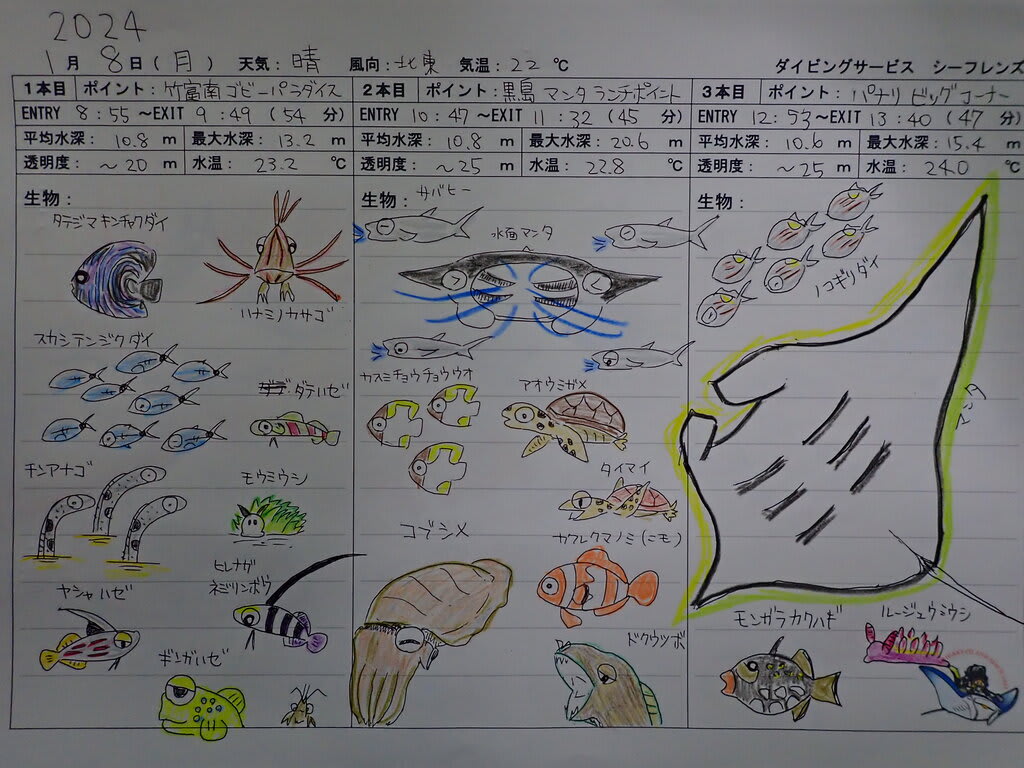 2024
1月 8日(月) 天気: 晴 風向: 北東 気温: 22 ℃
ダイビングサービス シーフレンズ
1本目 ポイント: 竹富南ゴビーパラダイス
ENTRY 8:55 ~EXIT 9:49 (54 分)
平均水深: 10.8 m 最大水深: 13.2 m
透明度: ~20 m 水温: 23.2 ℃
生物:
タテジマキンチャクダイ
ハナミノカサゴ
スカシテンジクダイ
ダテハゼ
チンアナゴ
モウミウシ
ヤシャハゼ
ヒレナガ
ネジリンボウ
ギンガハゼ
2本目 ポイント: 黒島 マンタランチポイント
ENTRY 10:47 ~EXIT 11:32 (45 分)
平均水深: 10.8 m 最大水深: 20.6 m
透明度: ~25 m 水温: 22.8 ℃
生物:
サバヒー
水面マンタ
カスミチョウチョウウオ
アオウミガメ
タイマイ
コブシメ
カクレクマノミ(ニモ)
ドクウツボ
3本目 ポイント: パナリ ビッグコーナー
ENTRY 12:53 ~EXIT 13:40 (47 分)
平均水深: 10.6 m 最大水深: 15.4 m
透明度: ~25 m 水温: 24.0 ℃
生物:
ノコギリダイ
マンタ
モンガラカワハギ
ルージュウミウシ